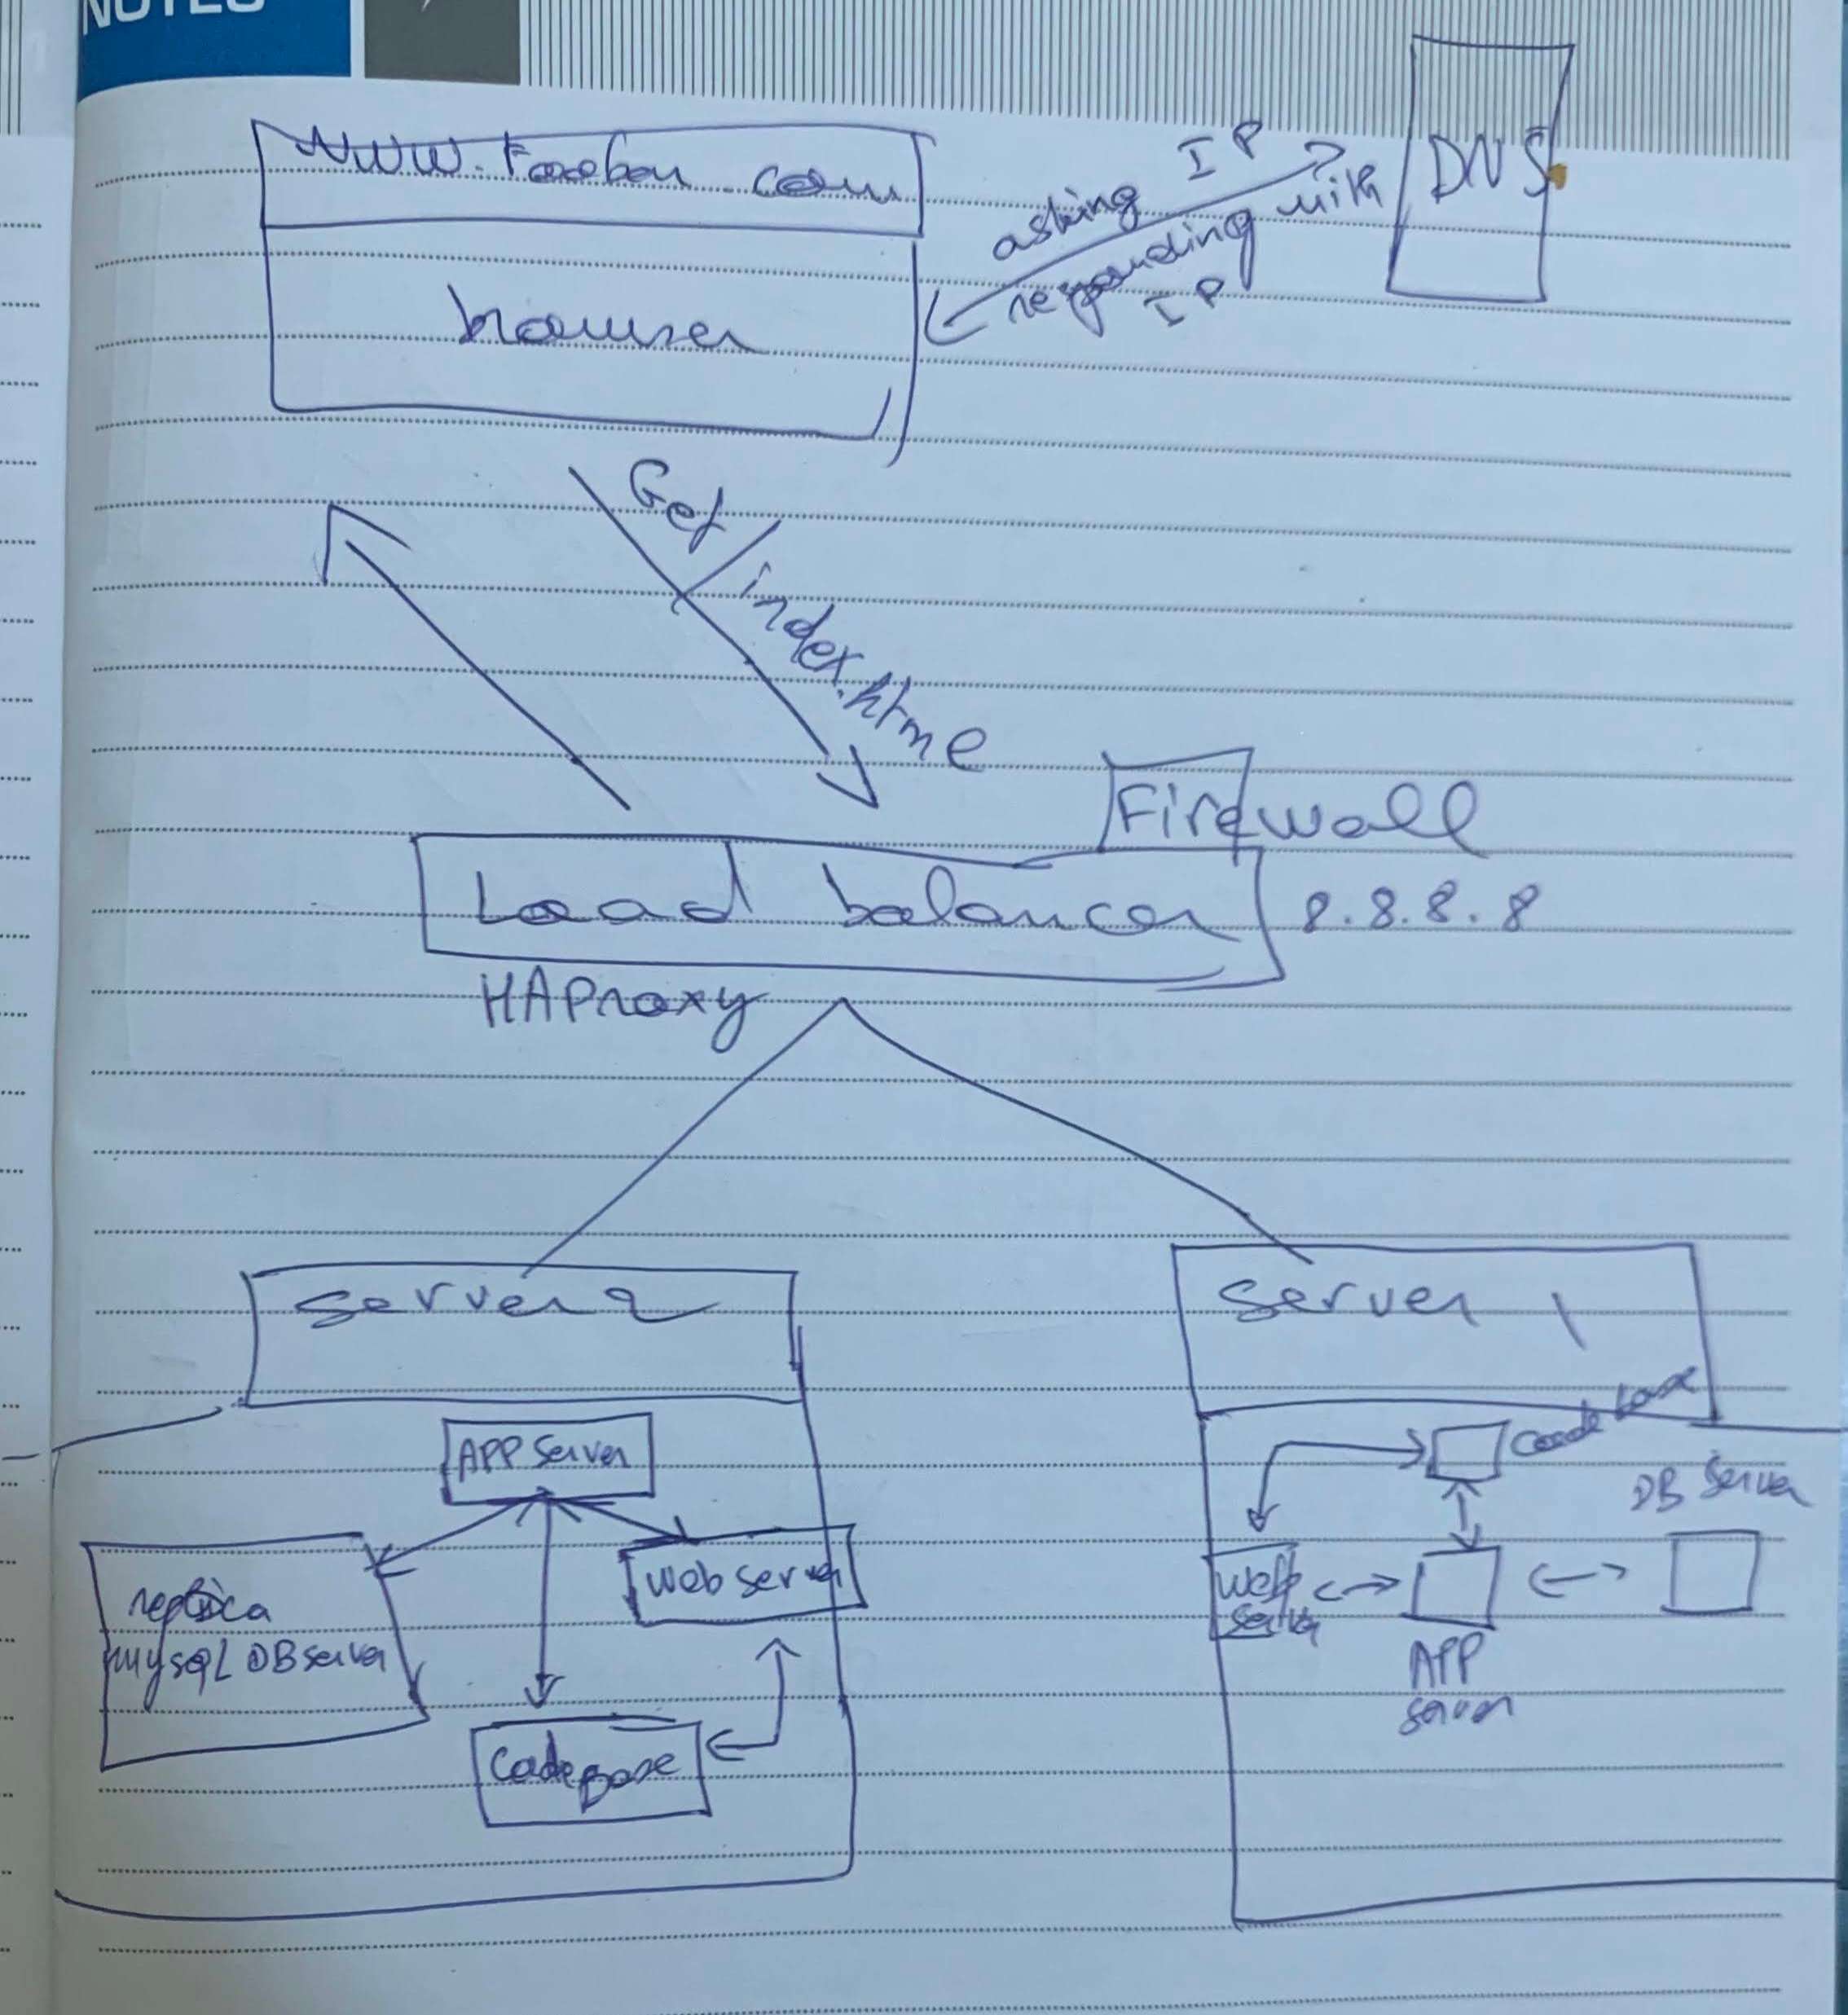 NOTES
www.Foobar.com
browser
asking IP
responding with
IP
DNS
Get/index.html
Firewall
Load balancer
8.8.8.8
HAProxy
server 2
server 1
APP Server
replica
mysql DB server
web server
Codebase
Code base
DB Server
Web
Server
APP
server